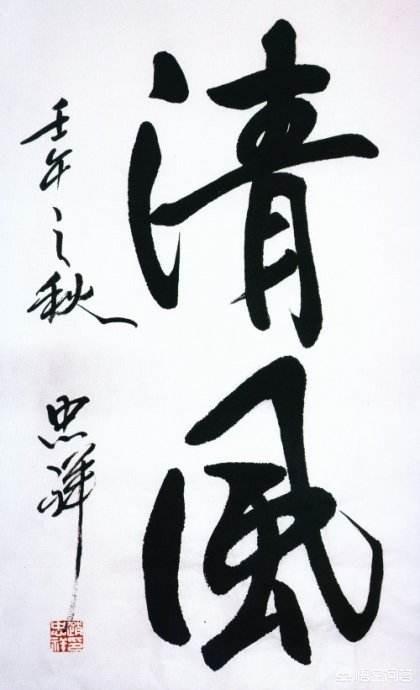 清風
壬午之秋
忠祥
趙忠祥
悟空问答